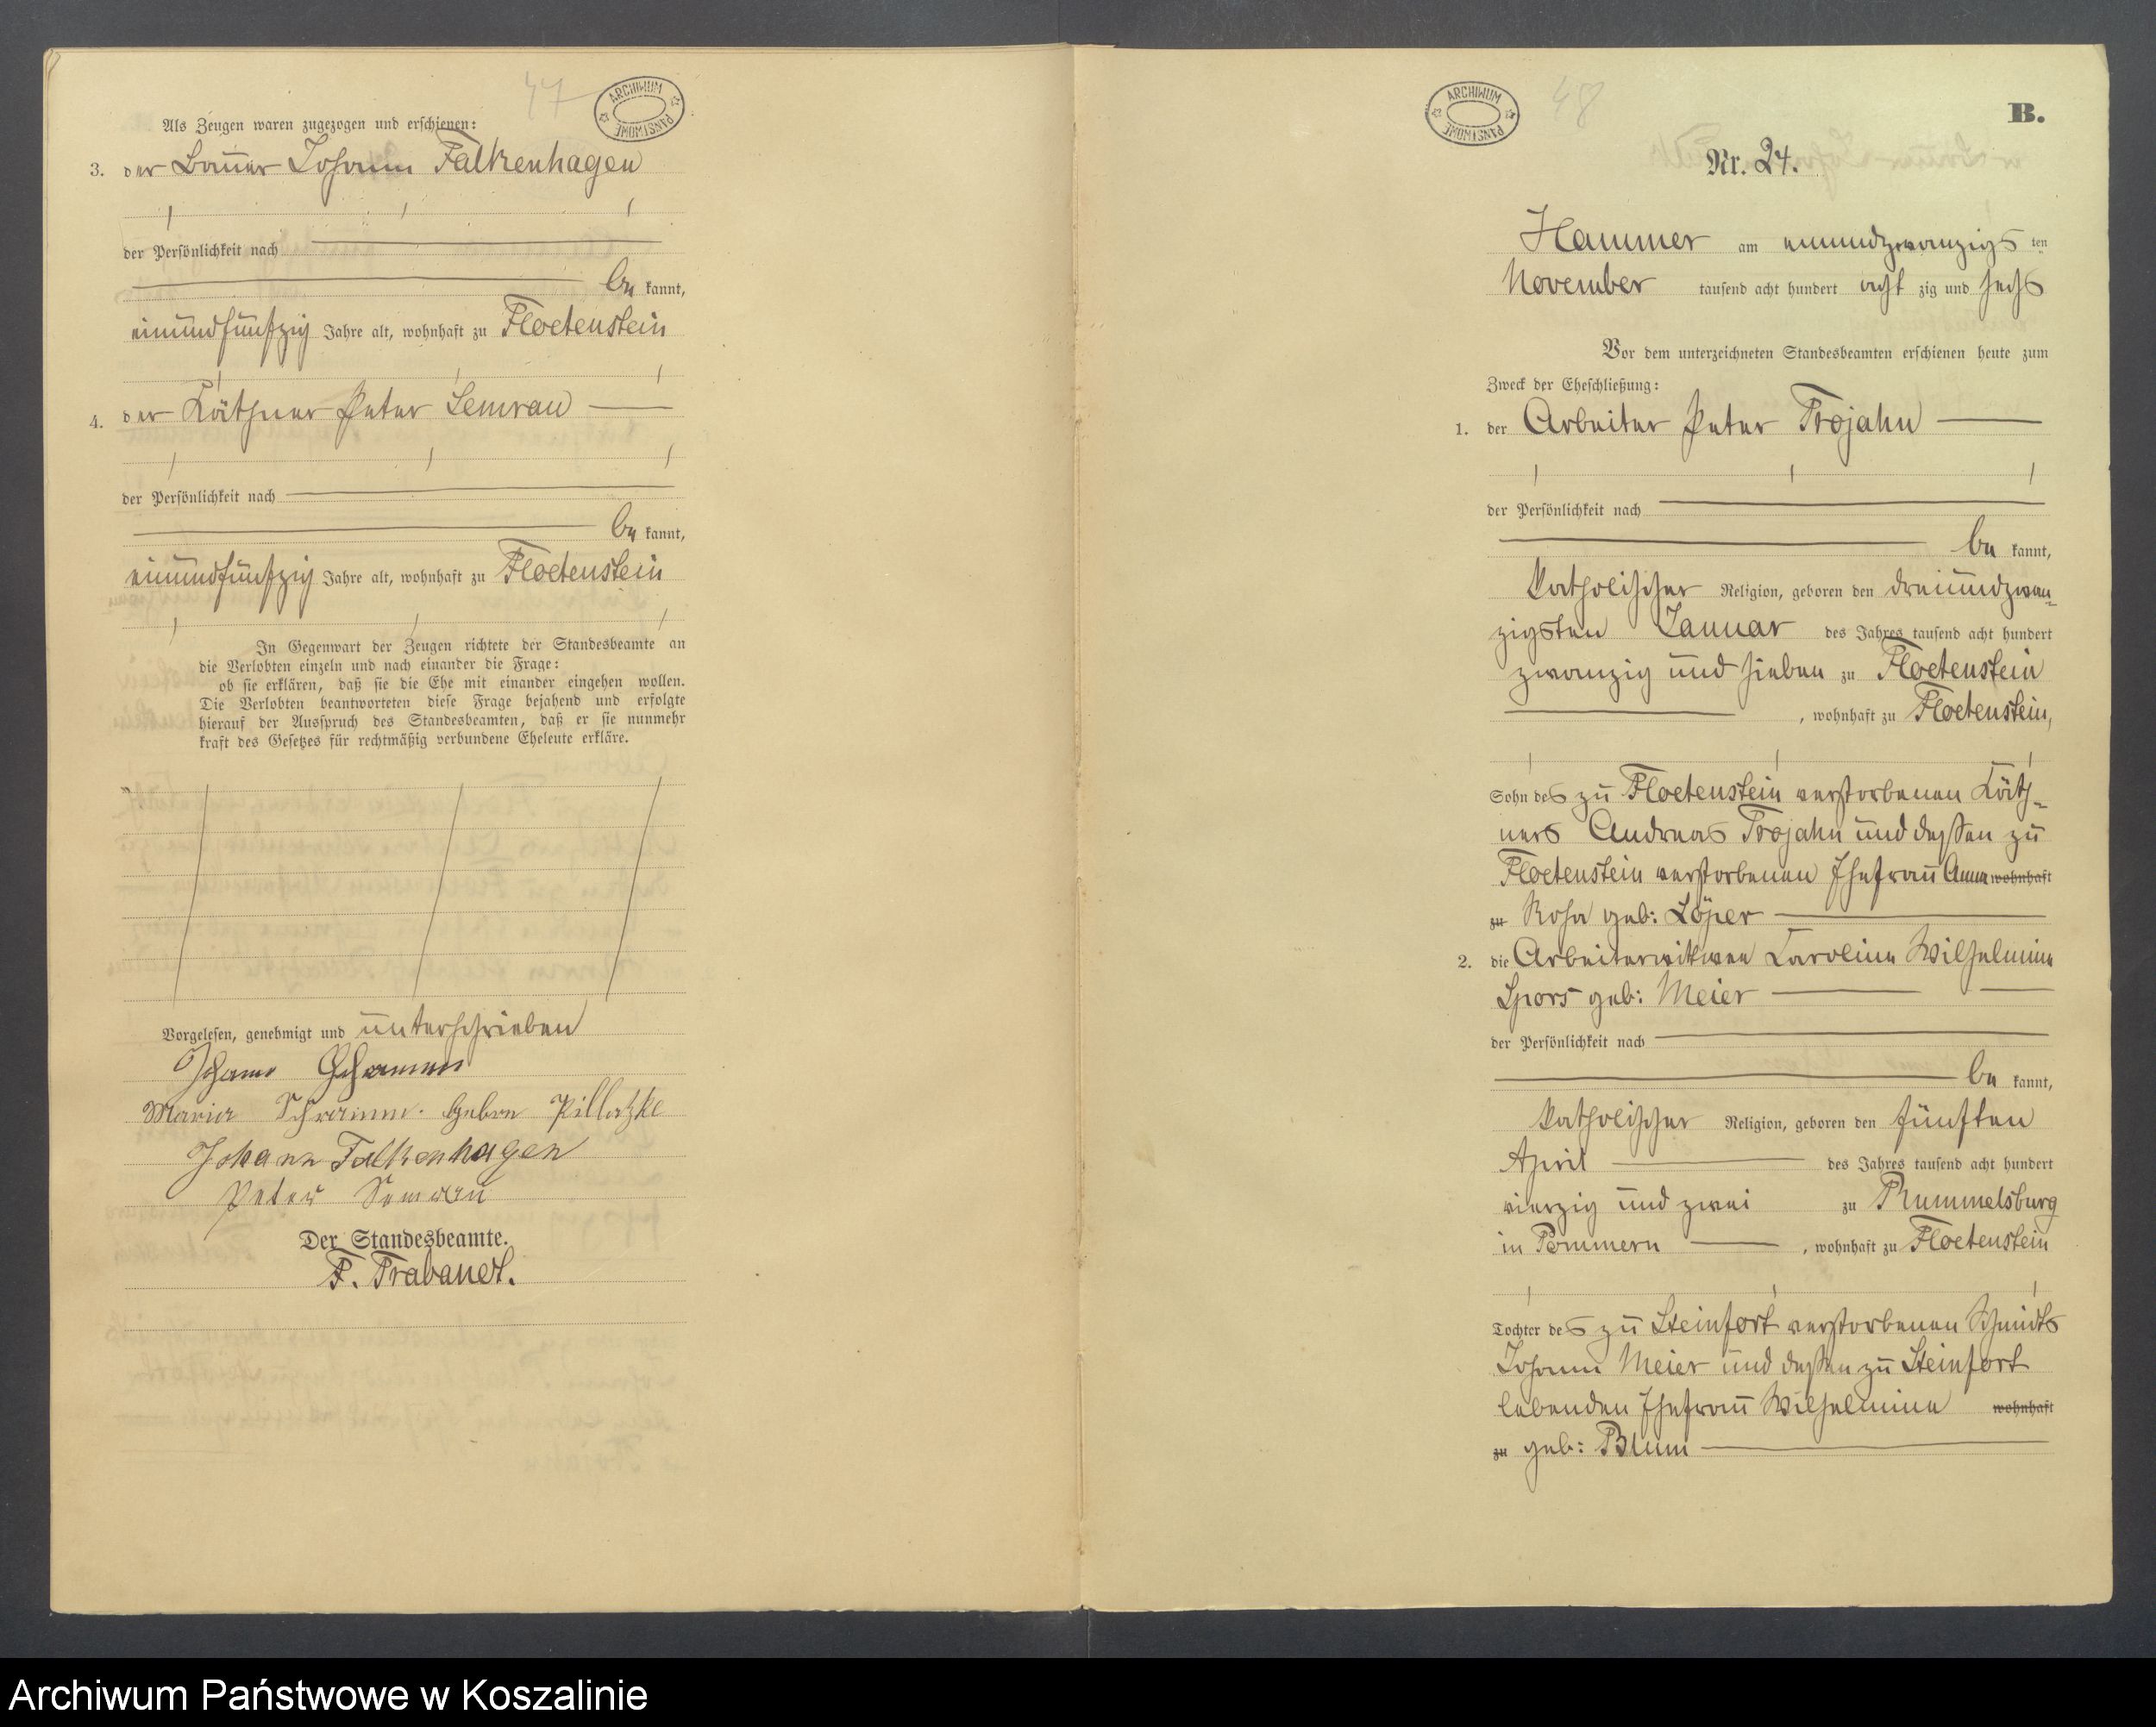 47
ARCHIWUM PAŃSTWOWE
Als Zeugen waren zugezogen und erschienen:
3. der Bauer Johann Falkenhagen
der Persönlichkeit nach
be kannt,
einundfünfzig Jahre alt, wohnhaft zu Floetenstein
4. der Käthner Peter Semrau
der Persönlichkeit nach
be kannt,
einundfünfzig Jahre alt, wohnhaft zu Floetenstein
In Gegenwart der Zeugen richtete der Standesbeamte an
die Verlobten einzeln und nach einander die Frage:
ob sie erklären, daß sie die Ehe mit einander eingehen wollen.
Die Verlobten beantworteten diese Frage bejahend und erfolgte
hierauf der Ausspruch des Standesbeamten, daß er sie nunmehr
kraft des Gesetzes für rechtmäßig verbundene Eheleute erkläre.
Vorgelesen, genehmigt und unterschrieben
Johann Schramm
Maria Schramm. geborn Pillatzke
Johann Falkenhagen
Peter Semrau
Der Standesbeamte.
F. Trabandt.
ARCHIWUM PAŃSTWOWE
48
B.
Nr. 24.
Hammer am einundzwanzigs ten
November tausend acht hundert acht zig und sechs
Vor dem unterzeichneten Standesbeamten erschienen heute zum
Zweck der Eheschließung:
1. der Arbeiter Peter Trojahn
der Persönlichkeit nach
be kannt,
katholischer Religion, geboren den dreiundzwan-
zigsten Januar des Jahres tausend acht hundert
zwanzig und sieben zu Floetenstein
, wohnhaft zu Floetenstein,
Sohn des zu Floetenstein verstorbenen Käth-
ners Andreas Trojahn und dessen zu
Floetenstein verstorbenen Ehefrau Anna wohnhaft
zu Rosa geb: Löper
2. die Arbeiterwittwee Caroline Wilhelmine
Spors geb: Meier
der Persönlichkeit nach
be kannt,
katholischer Religion, geboren den fünften
April des Jahres tausend acht hundert
vierzig und zwei zu Rummelsburg
in Pommern , wohnhaft zu Floetenstein
Tochter des zu Steinfort verstorbenen Schmidts
Johann Meier und dessen zu Steinfort
lebenden Ehefrau Wilhelmine wohnhaft
zu geb: Blum
Archiwum Państwowe w Koszalinie